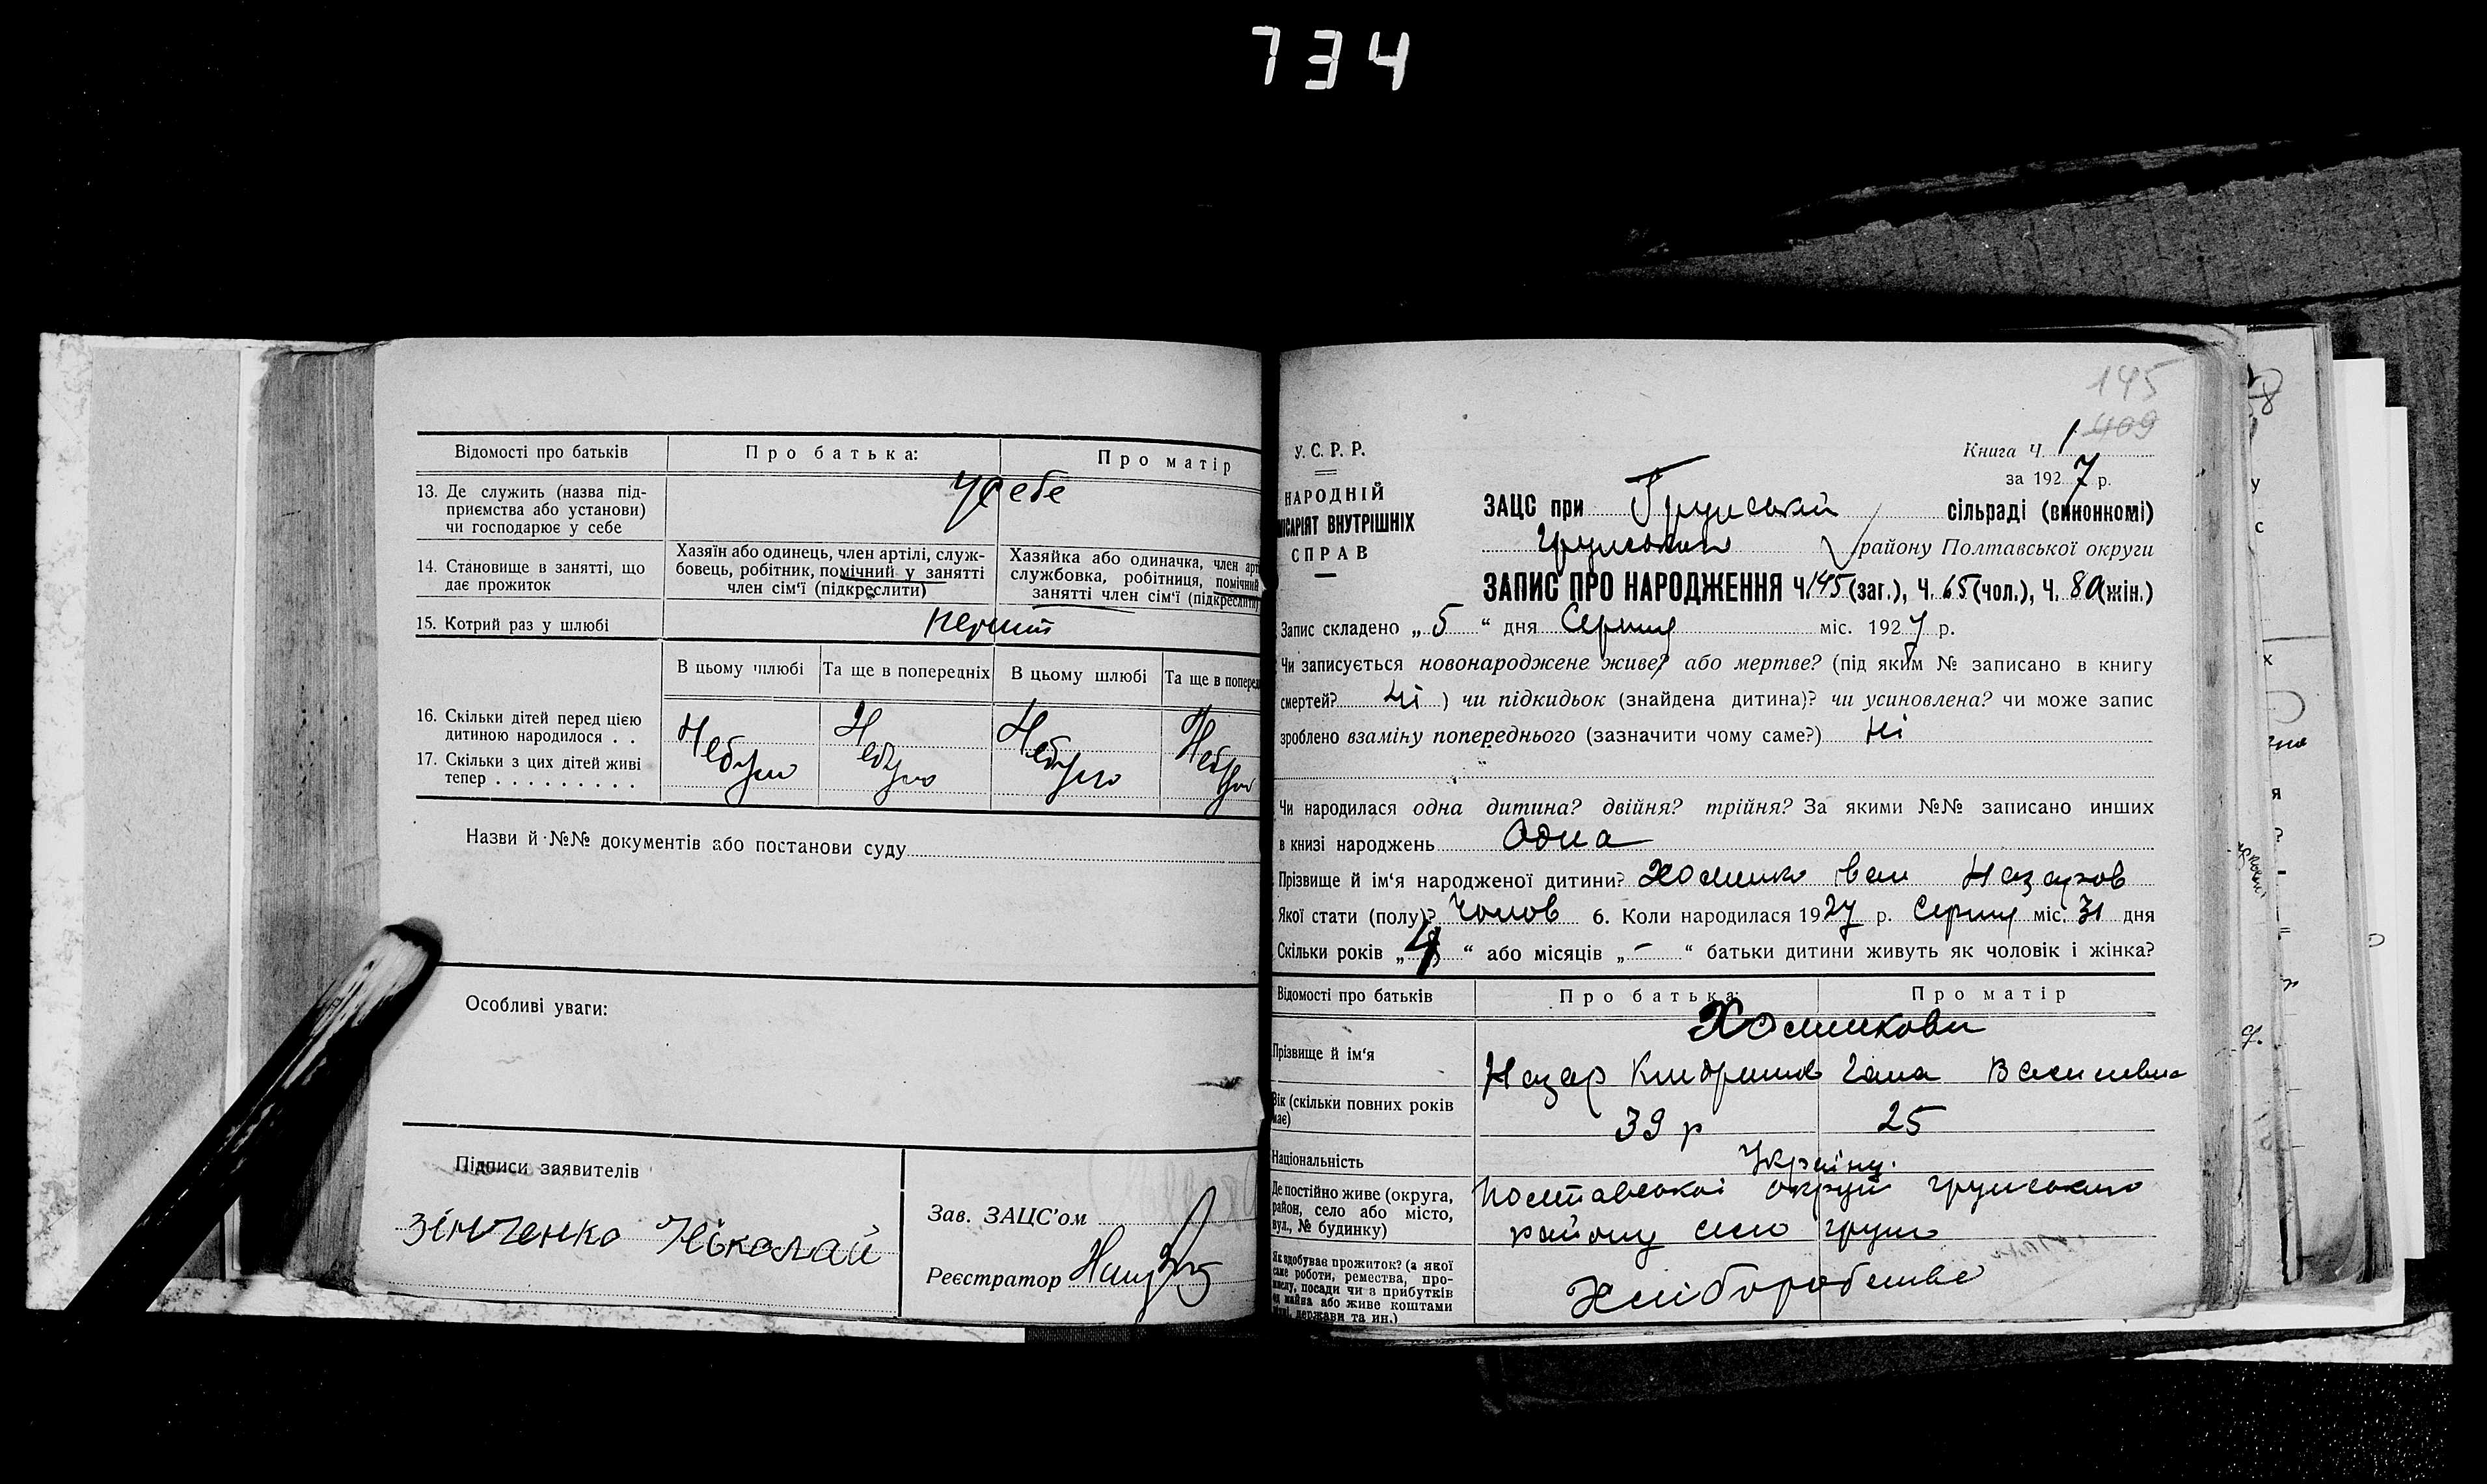 734
Відомості про батьків
Про батька:
Про матір
13. Де служить (назва під-
приємства або установи)
чи господарює у себе
у себе
14. Становище в занятті, що
дає прожиток
Хазяїн або одинець, член артілі, служ-
бовець, робітник, помічний у занятті
член сім'ї (підкреслити)
Хазяйка або одиначка, член арт
службовка, робітниця, помічний
занятті член сім'ї (підкреслити)
15. Котрий раз у шлюбі
перший
В цьому шлюбі
Та ще в попередніх
В цьому шлюбі
Та ще в поперед
16. Скільки дітей перед цією
дитиною народилося . .
17. Скільки з цих дітей живі
тепер . . . . . . . . .
Небуло
Небуло
Небуло
Небуло
Назви й №№ документів або постанови суду
Особливі уваги:
Підписи заявителів
Зінченко Ніколай
Зав. ЗАЦС'ом
Реєстратор
145
409
У. С. Р. Р.
НАРОДНІЙ
МІСАРІЯТ ВНУТРІШНІХ
СПРАВ
Книга Ч. 1
за 1927 р.
ЗАЦС при Грунській сільраді (виконкомі)
Грунського району Полтавської округи
ЗАПИС ПРО НАРОДЖЕННЯ Ч. 145 (заг.), Ч. 65 (чол.), Ч. 80 (жін.)
Запис складено „ 5 “ дня Серпня міс. 1927 р.
Чи записується новонароджене живе? або мертве? (під яким № записано в книгу
смертей? ні ) чи підкидьок (знайдена дитина)? чи усиновлена? чи може запис
зроблено взаміну попереднього (зазначити чому саме?) Ні
Чи народилася одна дитина? двійня? трійня? За якими №№ записано инших
в книзі народжень Одна
Прізвище й ім'я народженої дитини? Хоменко Іван Назаров
Якої стати (полу)? Чолов 6. Коли народилася 1927 р. Серпня міс. 31 дня
Скільки років „ 4 “ або місяців „ – “ батьки дитини живуть як чоловік і жінка?
Відомості про батьків
Про батька:
Про матір
Прізвище й ім'я
Назар
Гана Василевна
Вік (скільки повних років
має)
39 р
25
Національність
Україну.
Де постійно живе (округа,
район, село або місто,
вул., № будинку)
Полтавської округи Грунського
району село Грунь
Як здобуває прожиток? (з якої
саме роботи, ремества, про-
мислу, посади чи з прибутків
від майна або живе коштами
держави та ин.)
Хліборобство